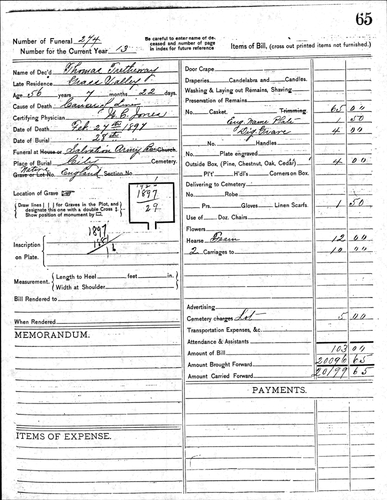 65
Number of Funeral 274
Number for the Current Year 13
Be careful to enter name of deceased and number of page in index for future reference
Items of Bill, (cross out printed items not furnished.)
Name of Dec'd Thomas Trethway
Late Residence Grass Valley
Age 56 years 7 months 22 days
Cause of Death Cancer of Liver
Certifying Physician Jones
Date of Death Feb. 27th 1897
Date of Burial 28th
Funeral at House or Salvation Army Church.
Place of Burial City Cemetery.
Native England
Grave or Lot No. Section No. 1
Location of Grave
Draw lines ( | ) for Graves in the Plot, and designate this one with a double Cross
Show position of monument by
1897
29
Inscription on Plate.
1897
Measurement. Length to Heel feet in.
Width at Shoulder
Bill Rendered to
When Rendered
MEMORANDUM.
ITEMS OF EXPENSE.
Door Crape
Draperies Candelabra and Candles.
Washing & Laying out Remains, Shaving
Preservation of Remains
No. Casket, Trimming 65 00
Eng Name Plate 1 50
Dig Grave 4 00
No. Handles
Plate engraved
Outside Box (Pine, Chestnut, Oak, Cedar) 4 00
P'l'y H'd'l's Corners on Box
Delivering to Cemetery
No. Robe
Prs. Gloves Linen Scarfs 1 50
Use of Doz. Chairs
Flowers
Hearse 12 00
2 Carriages to 10 00
Advertising
Cemetery charges Lot 5 00
Transportation Expenses, &c.
Attendance & Assistants
Amount of Bill 103 00
Amount Brought Forward 20096 65
Amount Carried Forward 20199 65
PAYMENTS.